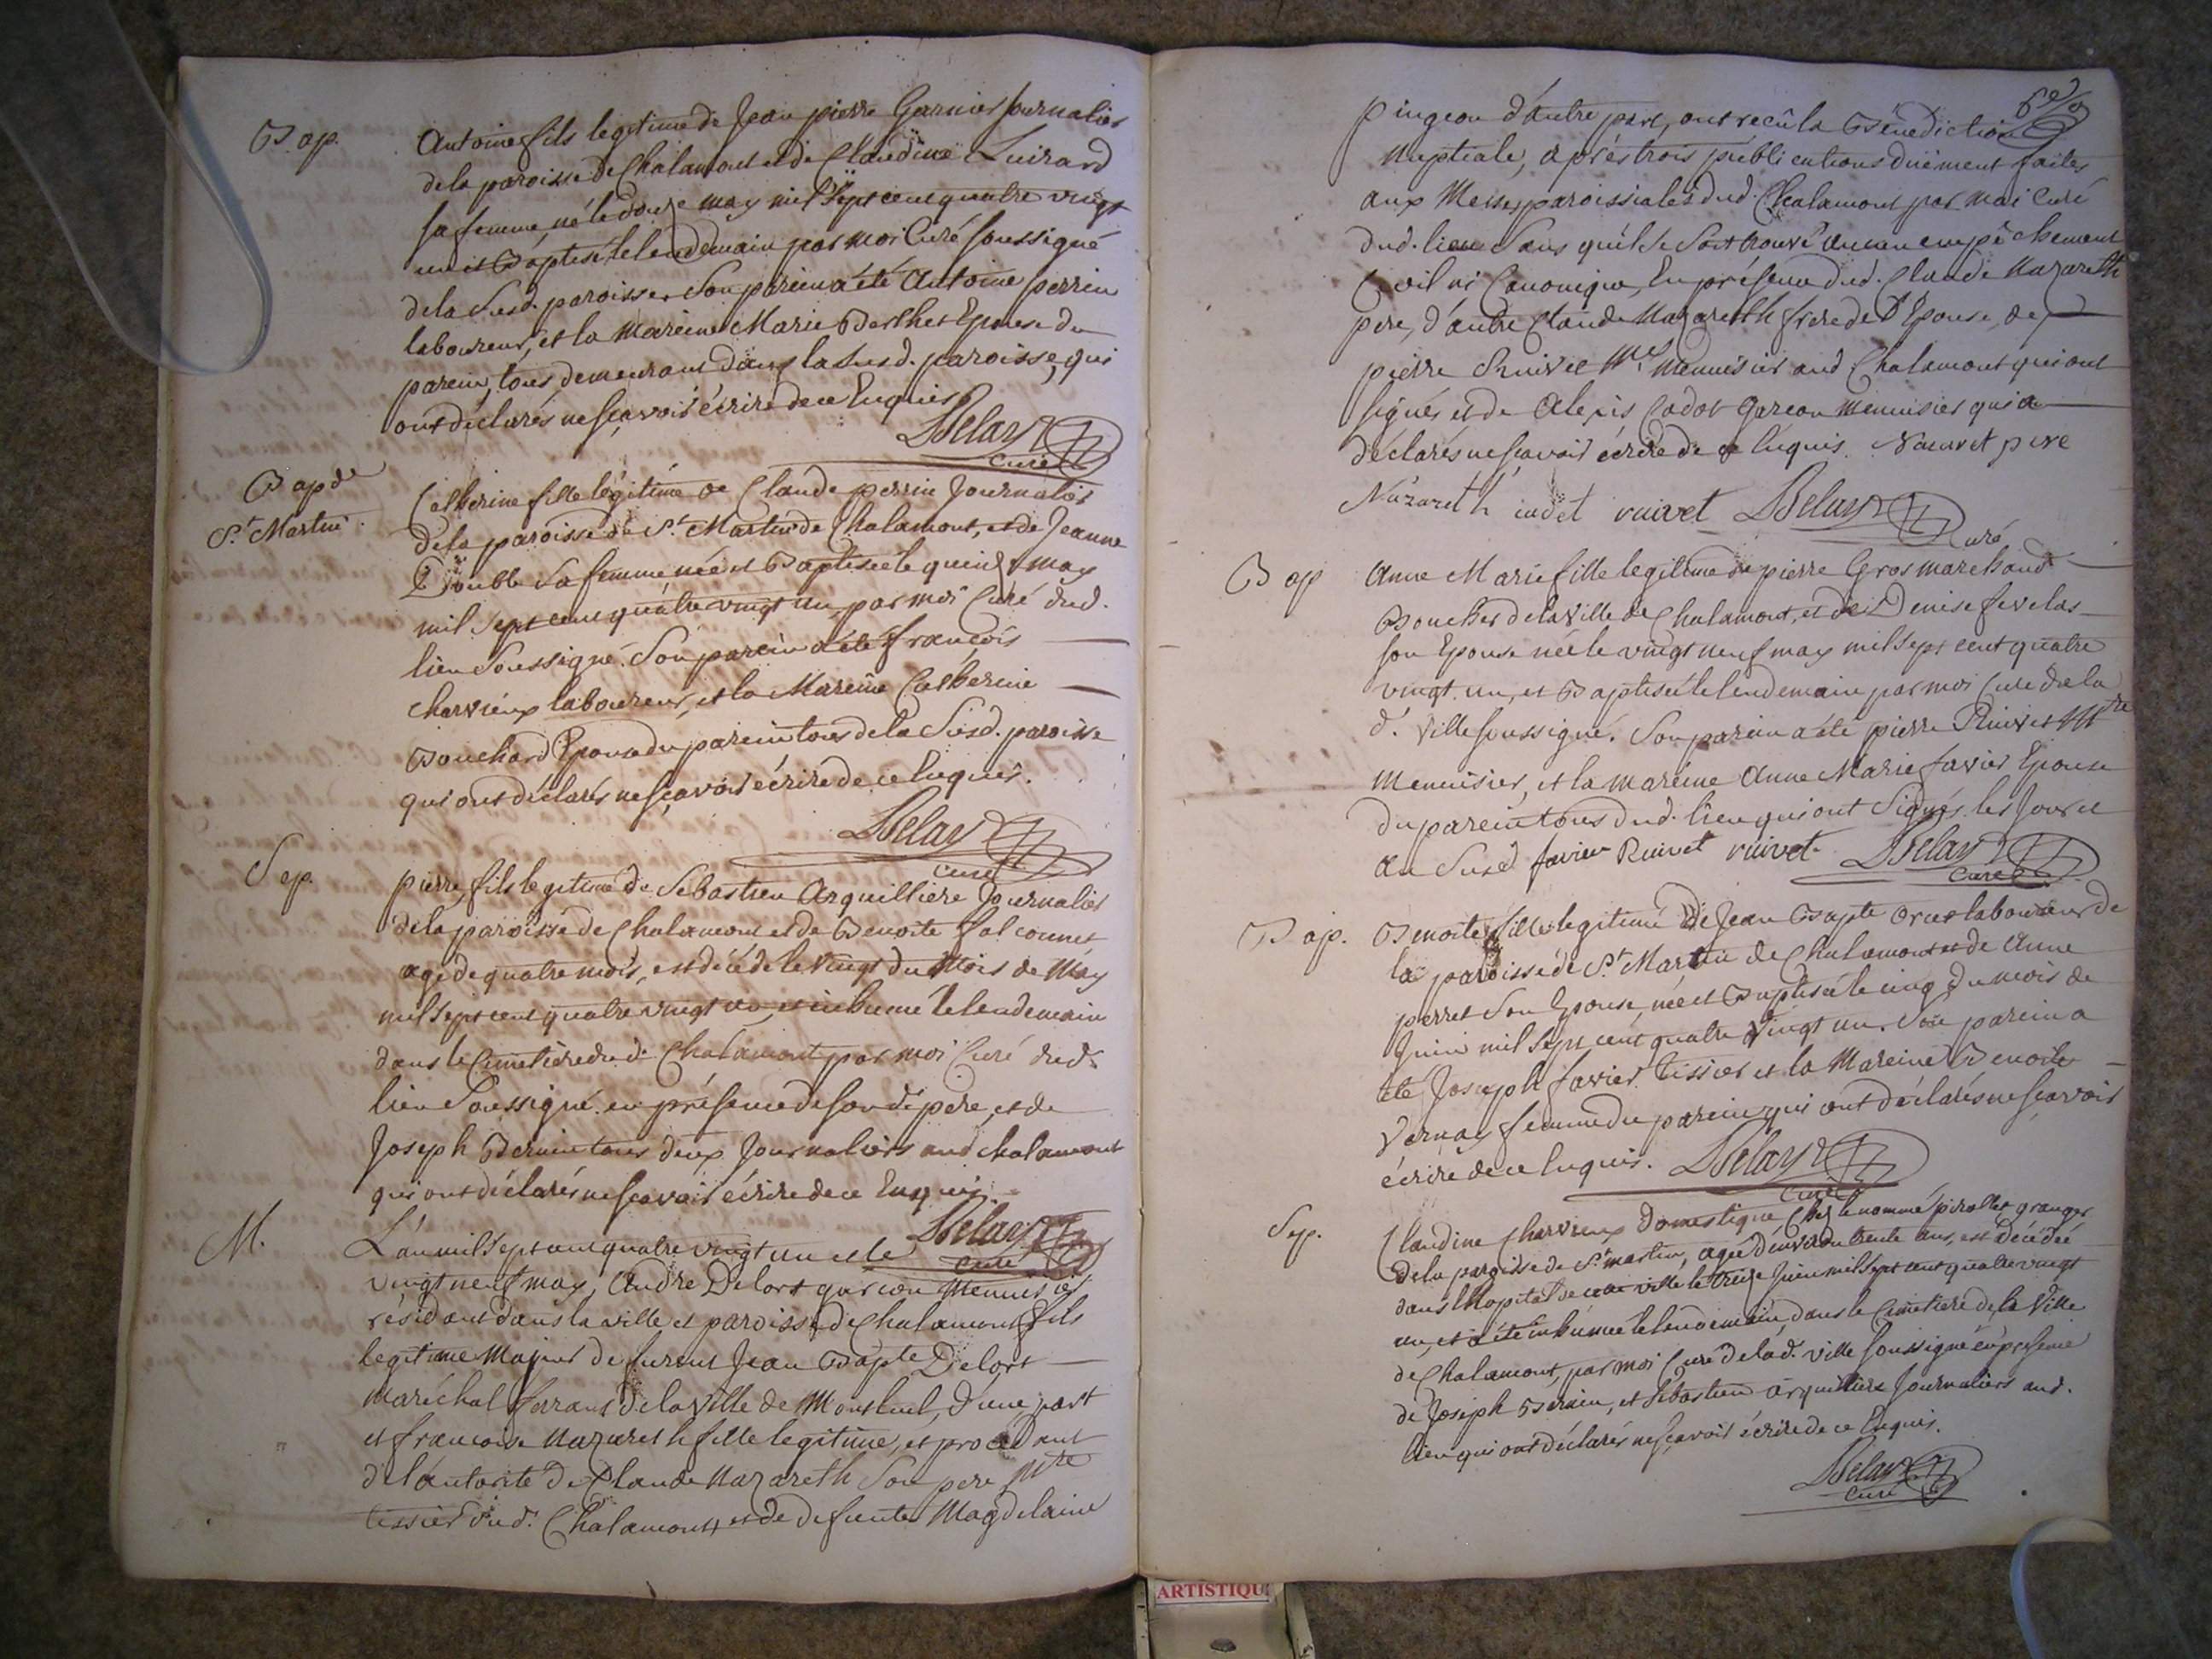 Bap.
Antoine fils legitime de Jean pierre Garnier Journalier
de la paroisse de Chalamont et de Claudine Luirard
sa femme, né le douze may mil sept cent quatre vingt
un et Baptisé le lendemain par moi Curé soussigné
de la Susd. paroisse. Son parein a été Antoine perrin
laboureur, et la Mareine Marie Berthet Epouse du
parein, tous demeurant dans la Susd. paroisse, qui
ont déclarés ne sçavoir écrire de ce Enquis
Delay
Curé
Bap de
St. Martin
Catherine fille légitime de Claude perrin Journalier
de la paroisse de St. Martin de Chalamont, et de Jeanne
Double Sa femme née et Baptisée le quinze may
mil sept cent quatre vingt un, par moi Curé dud.
lieu Soussigné. Son parein a été françois
Charvieux laboureur, et la Mareine Catherine
Bouchard Epouse du parein tous de la Susd. paroisse
qui ont déclarés ne sçavoir écrire de ce Enquis.
Delay
Curé
Sep.
pierre, fils legitime de Sébastien Arquilliere Journalier
de la paroisse de Chalamont et de Benoite falconnet
agé de quatre mois, est décédé le vingt du Mois de May
mil sept cent quatre vingt un, et inhumé le lendemain
dans le Cimetière dud. Chalamont par moi Curé dud.
lieu Soussigné en présence de sond. pere, et de
Joseph Bernin tous deux Journaliers aud Chalamont
qui ont déclarés ne sçavoir écrire de ce Enquis.
Delay
Curé
M.
L'an mil sept cent quatre vingt un et le
vingt neuf may, André Delort garcon Menuisier
résidant dans la ville et paroisse de Chalamont fils
legitime Majeur de furent Jean Bapte Delort
Maréchal ferrant de la ville de Montluel, d'une part
et francoise Nazareth fille legitime, et procédant
de l'autorité de Claude Nazareth Son pere Mtre
tissier dud. Chalamont et de defunte Magdelaine
pingeon d'autre part, ont recû la Bénédiction
nuptiale, aprés trois publications duëment faites
aux Messes paroissiales dud. Chalamont par moi Curé
dud. lieu Sans qu'il se soit trouvé aucun empêchement
Civil ni Canonique, En présence dud. Claude Nazareth
pere, d'autre Claude Nazareth frere de l'Epouse, de
pierre Ruivet Mtre Menuisier aud Chalamont qui ont
signés et de Alexis Cadot garcon Menuisier qui a
déclarés ne sçavoir écrire de ce Enquis. Nazaret pere
Nazareth cadet ruivet Delay
Curé
Bap
Anne Marie fille legitime de pierre Gros marchand
Boucher de la ville de Chalamont, et de Denise fevelas
son Epouse née le vingt neuf may mil sept cent quatre
vingt un, et Baptisée le lendemain par moi Curé de la
d. ville soussigné. Son parein a été pierre Ruivet Mtre
Menuisier, et la mareine Anne Marie favier Epouse
du parein tous dud. lieu qui ont Signés les Jour et
an Susd favier Ruivet ruivet Delay
Curé
Bap.
Benoite fille legitime de Jean Bapte laboureur de
la paroisse de St. Martin de Chalamont et de Anne
perret Son Epouse, née et Baptisée le cinq du mois de
Juin mil sept cent quatre vingt un. Son parein a
été Joseph favier tissier et la Mareine Benoite
Vernay femme du parein qui ont déclarés ne sçavoir
écrire de ce Enquis. Delay
Curé
Sep.
Claudine Charvieux Domestique chez le nommé pirollet granger
de la paroisse de St. martin, agée d'environ trente ans, est décédée
dans l'hopital de cette ville le treize Juin mil sept cent quatre vingt
un, et a été inhumée le lendemain, dans le Cimetiere de la Ville
de Chalamont, par moi Curé de la d. ville soussigné en présence
de Joseph Bernin, et Sébastien Arquilliere Journaliers aud.
lieu qui ont déclarés ne sçavoir écrire de ce Enquis.
Delay
Curé
ARTISTIQU